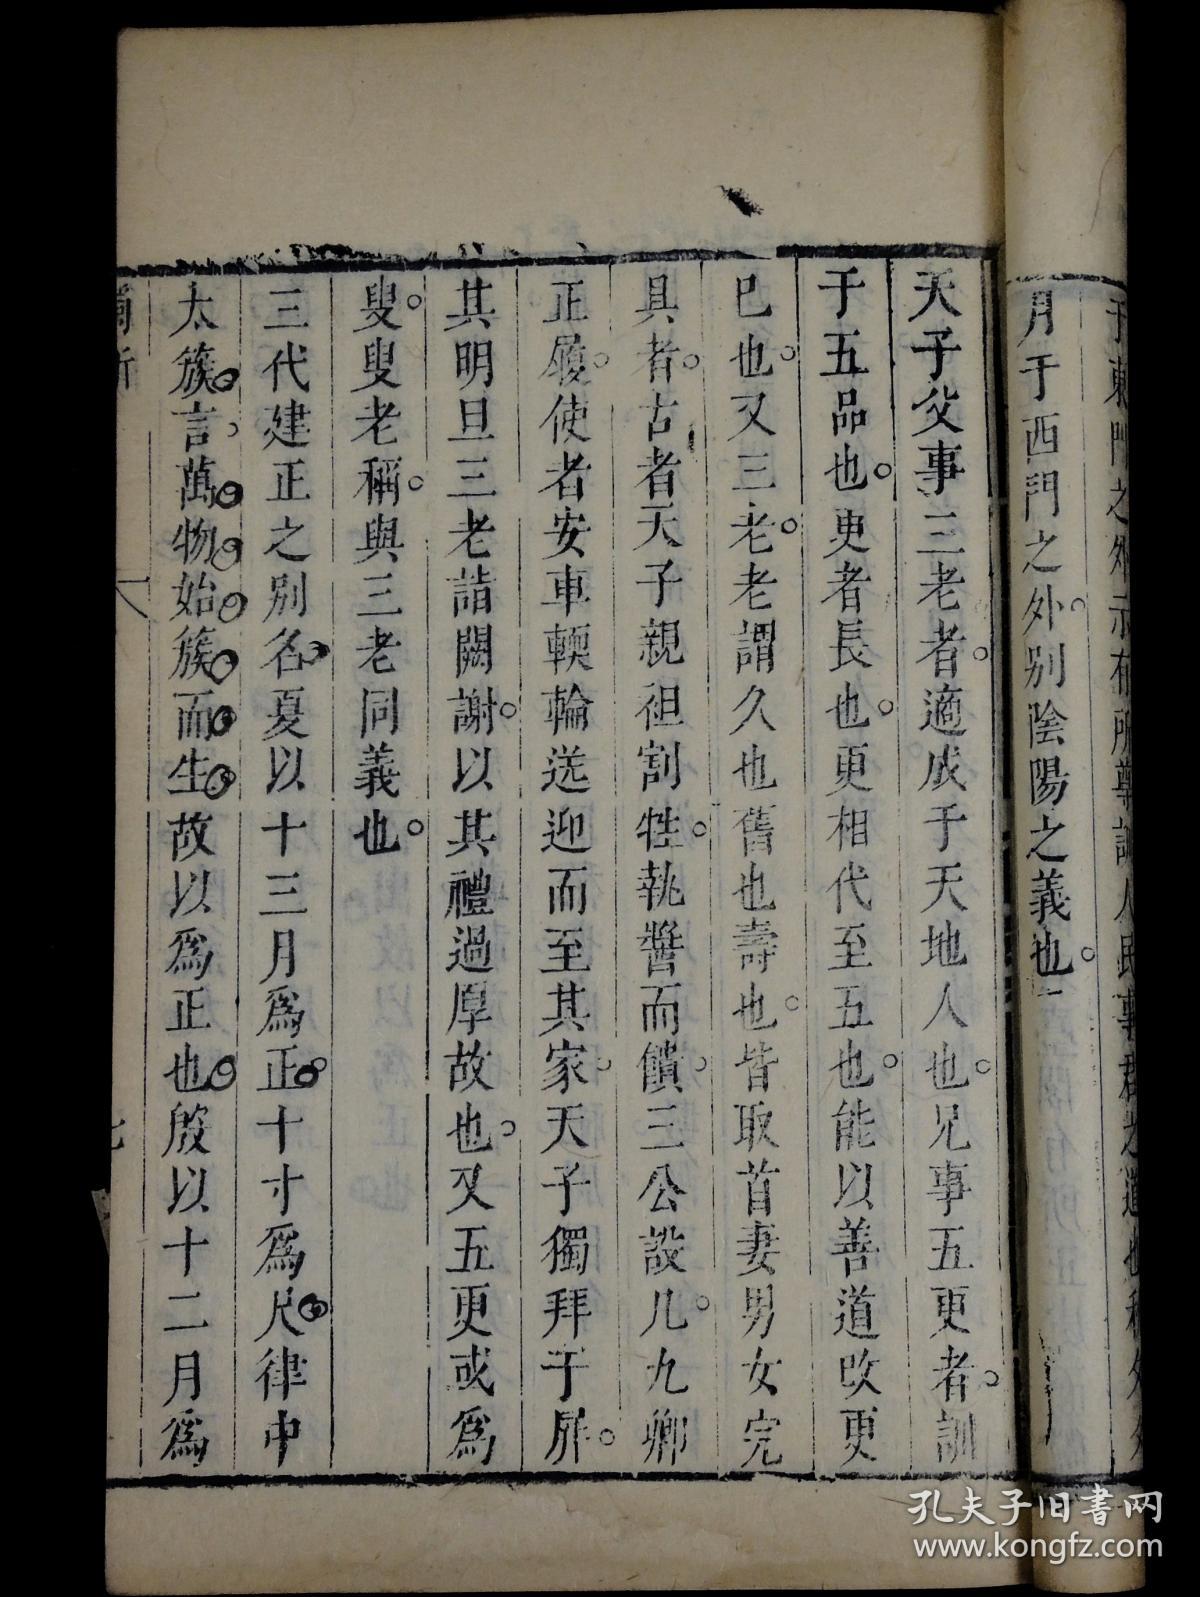 于東門之外示有所尊訓人民事君之道也秋夕夕
月于西門之外別陰陽之義也
天子父事三老者適成于天地人也兄事五更者訓
于五品也更者長也更相代至五也能以善道改更
已也又三老老謂久也舊也壽也皆取首妻男女完
具者古者天子親袒割牲執醬而饋三公設几九卿
正履使者安車輭輪送迎而至其家天子獨拜于屏
其明旦三老詣闕謝以其禮過厚故也又五更或爲
叟叟老稱與三老同義也
三代建正之別名夏以十三月爲正十寸爲尺律中
太簇言萬物始簇而生故以爲正也殷以十二月爲
孔夫子旧书网
www.kongfz.com